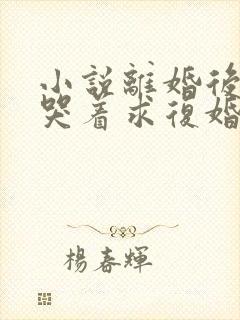 小說離婚後
哭着求復婚
楊春輝